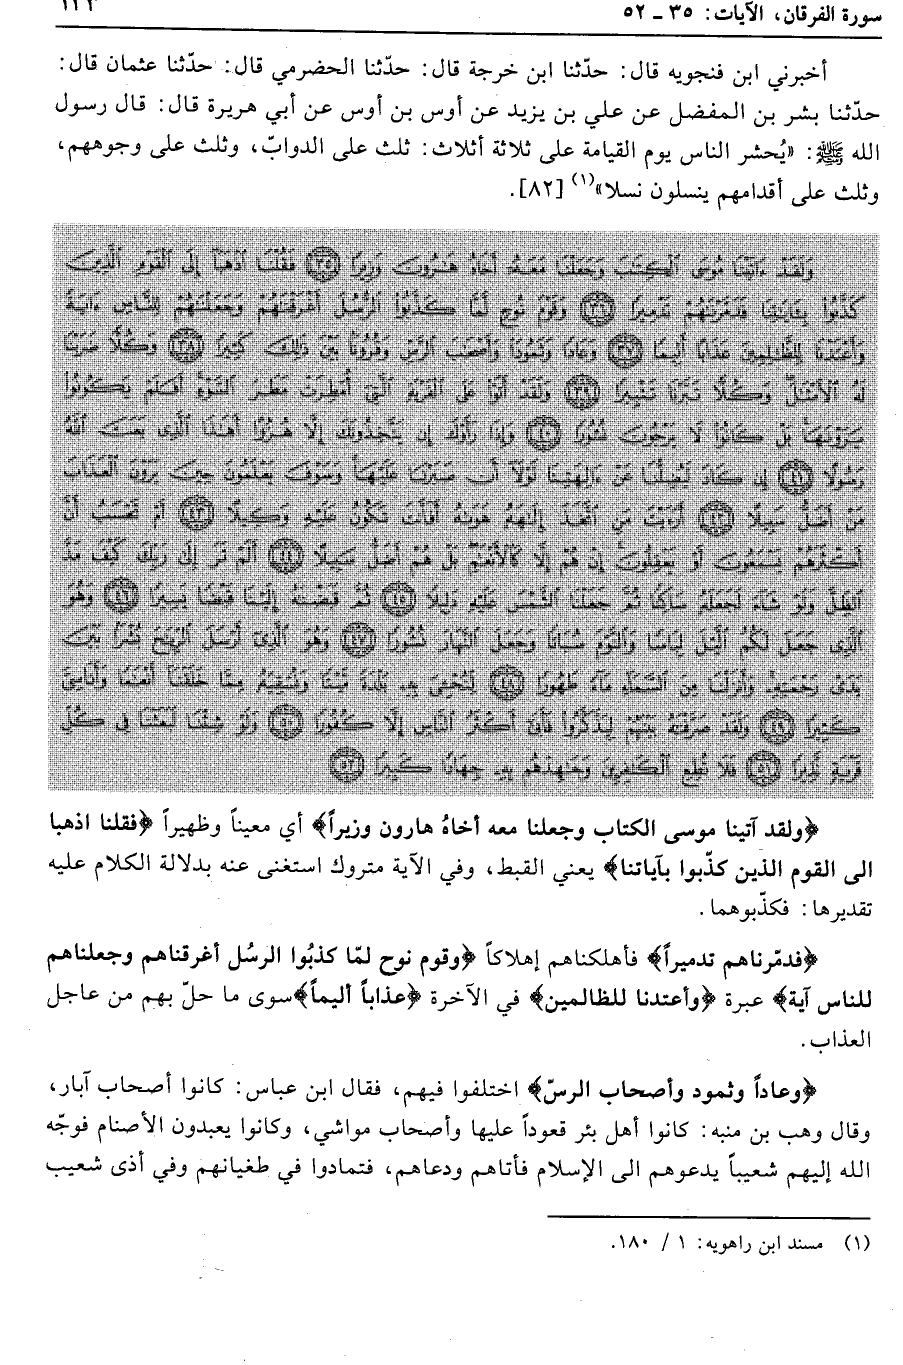 سورة الفرقان، الآيات: ٣٥ ـ ٥٢
أخبرني ابن فنجويه قال: حدّثنا ابن خرجة قال: حدّثنا الحضرمي قال: حدّثنا عثمان قال:
حدّثنا بشر بن المفضل عن علي بن يزيد عن أوس بن أوس عن أبي هريرة قال: قال رسول
الله ﷺ: «يُحشر الناس يوم القيامة على ثلاثة أثلاث: ثلث على الدوابّ، وثلث على وجوههم،
وثلث على أقدامهم ينسلون نسلا»(١) [٨٢].
وَلَقَدْ ءَاتَيْنَا مُوسَى ٱلْكِتَٰبَ وَجَعَلْنَا مَعَهُۥٓ أَخَاهُ هَٰرُونَ وَزِيرًا ٣٥ فَقُلْنَا ٱذْهَبَآ إِلَى ٱلْقَوْمِ ٱلَّذِينَ
كَذَّبُوا۟ بِـَٔايَٰتِنَا فَدَمَّرْنَٰهُمْ تَدْمِيرًا ٣٦ وَقَوْمَ نُوحٍ لَّمَّا كَذَّبُوا۟ ٱلرُّسُلَ أَغْرَقْنَٰهُمْ وَجَعَلْنَٰهُمْ لِلنَّاسِ ءَايَةً
وَأَعْتَدْنَا لِلظَّٰلِمِينَ عَذَابًا أَلِيمًا ٣٧ وَعَادًا وَثَمُودَا۟ وَأَصْحَٰبَ ٱلرَّسِّ وَقُرُونًۢا بَيْنَ ذَٰلِكَ كَثِيرًا ٣٨ وَكُلًّا ضَرَبْنَا
لَهُ ٱلْأَمْثَٰلَ وَكُلًّا تَبَّرْنَا تَتْبِيرًا ٣٩ وَلَقَدْ أَتَوْا۟ عَلَى ٱلْقَرْيَةِ ٱلَّتِىٓ أُمْطِرَتْ مَطَرَ ٱلسَّوْءِ أَفَلَمْ يَكُونُوا۟
يَرَوْنَهَا بَلْ كَانُوا۟ لَا يَرْجُونَ نُشُورًا ٤٠ وَإِذَا رَأَوْكَ إِن يَتَّخِذُونَكَ إِلَّا هُزُوًا أَهَٰذَا ٱلَّذِى بَعَثَ ٱللَّهُ
رَسُولًا ٤١ إِن كَادَ لَيُضِلُّنَا عَنْ ءَالِهَتِنَا لَوْلَآ أَن صَبَرْنَا عَلَيْهَا وَسَوْفَ يَعْلَمُونَ حِينَ يَرَوْنَ ٱلْعَذَابَ
مَنْ أَضَلُّ سَبِيلًا ٤٢ أَرَءَيْتَ مَنِ ٱتَّخَذَ إِلَٰهَهُۥ هَوَىٰهُ أَفَأَنتَ تَكُونُ عَلَيْهِ وَكِيلًا ٤٣ أَمْ تَحْسَبُ أَنَّ
أَكْثَرَهُمْ يَسْمَعُونَ أَوْ يَعْقِلُونَ إِنْ هُمْ إِلَّا كَٱلْأَنْعَٰمِ بَلْ هُمْ أَضَلُّ سَبِيلًا ٤٤ أَلَمْ تَرَ إِلَىٰ رَبِّكَ كَيْفَ مَدَّ
ٱلظِّلَّ وَلَوْ شَآءَ لَجَعَلَهُۥ سَاكِنًا ثُمَّ جَعَلْنَا ٱلشَّمْسَ عَلَيْهِ دَلِيلًا ٤٥ ثُمَّ قَبَضْنَٰهُ إِلَيْنَا قَبْضًا يَسِيرًا ٤٦ وَهُوَ
ٱلَّذِى جَعَلَ لَكُمُ ٱلَّيْلَ لِبَاسًا وَٱلنَّوْمَ سُبَاتًا وَجَعَلَ ٱلنَّهَارَ نُشُورًا ٤٧ وَهُوَ ٱلَّذِىٓ أَرْسَلَ ٱلرِّيَٰحَ بُشْرًۢا بَيْنَ
يَدَىْ رَحْمَتِهِۦ وَأَنزَلْنَا مِنَ ٱلسَّمَآءِ مَآءً طَهُورًا ٤٨ لِّنُحْۦِىَ بِهِۦ بَلْدَةً مَّيْتًا وَنُسْقِيَهُۥ مِمَّا خَلَقْنَآ أَنْعَٰمًا وَأَنَاسِىَّ
كَثِيرًا ٤٩ وَلَقَدْ صَرَّفْنَٰهُ بَيْنَهُمْ لِيَذَّكَّرُوا۟ فَأَبَىٰٓ أَكْثَرُ ٱلنَّاسِ إِلَّا كُفُورًا ٥٠ وَلَوْ شِئْنَا لَبَعَثْنَا فِى كُلِّ
قَرْيَةٍ نَّذِيرًا ٥١ فَلَا تُطِعِ ٱلْكَٰفِرِينَ وَجَٰهِدْهُم بِهِۦ جِهَادًا كَبِيرًا ٥٢
﴿ولقد آتينا موسى الكتاب وجعلنا معه أخاهُ هارون وزيراً﴾ أي معيناً وظهيراً ﴿فقلنا اذهبا
الى القوم الذين كذّبوا بآياتنا﴾ يعني القبط، وفي الآية متروك استغنى عنه بدلالة الكلام عليه
تقديرها: فكذّبوهما.
﴿فدمّرناهم تدميراً﴾ فأهلكناهم إهلاكاً ﴿وقوم نوح لمّا كذبُوا الرسُل أغرقناهم وجعلناهم
للناس آية﴾ عبرة ﴿وأعتدنا للظالمين﴾ في الآخرة ﴿عذاباً أليماً﴾ سوى ما حلّ بهم من عاجل
العذاب.
﴿وعاداً وثمود وأصحاب الرسّ﴾ اختلفوا فيهم، فقال ابن عباس: كانوا أصحاب آبار،
وقال وهب بن منبه: كانوا أهل بئر قعوداً عليها وأصحاب مواشي، وكانوا يعبدون الأصنام فوجّه
الله إليهم شعيباً يدعوهم الى الإسلام فأتاهم ودعاهم، فتمادوا في طغيانهم وفي أذى شعيب
(١) مسند ابن راهويه: ١ / ١٨٠.